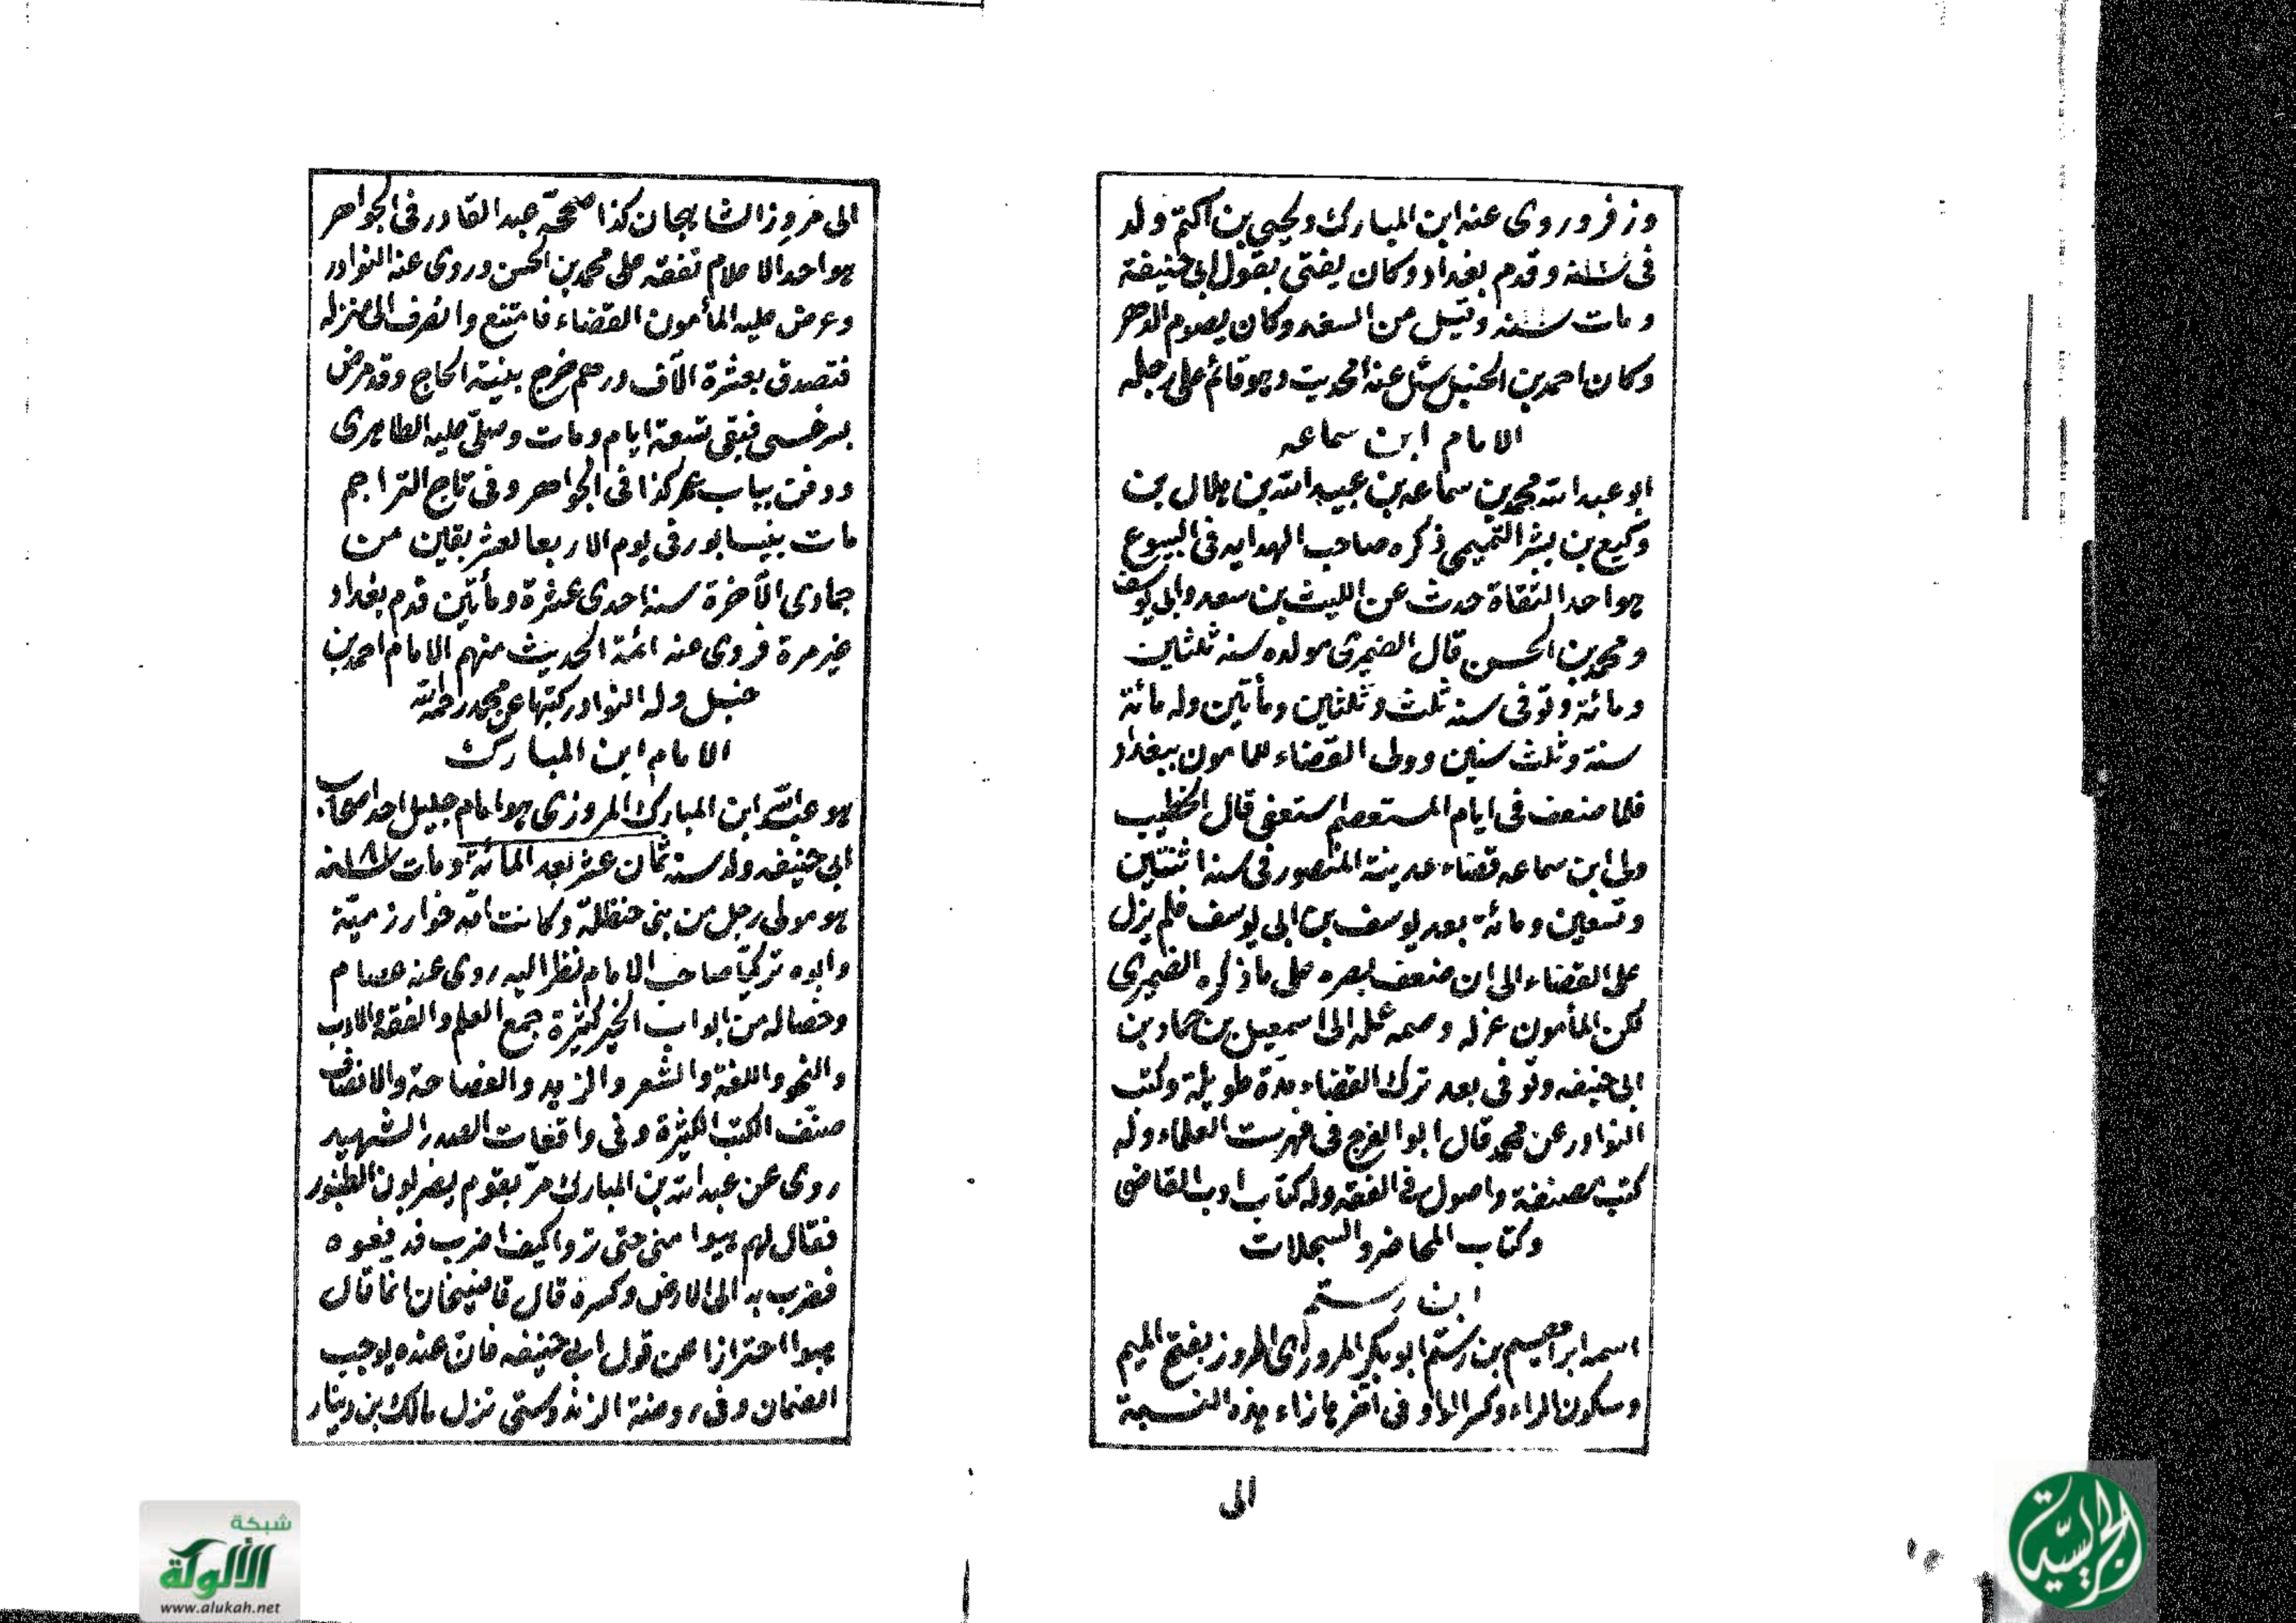 وزفر وروى عنه ابن المبارك ويحيى بن اكثم ولد
فى سنة وقدم بغداد وكان يفتى بقول ابى حنيفة
ومات سنة وقيل من السغد وكان يصوم الدهر
وكان احمد بن الحنبل يسئل عنه الحديث وهو قائم على رجله
الامام ابن سماعه
ابو عبد الله محمد بن سماعه بن عبيد الله بن هلال بن
وكيع بن بشر التميمى ذكره صاحب الهدايه فى البيوع
هو احد الثقاة حدث عن الليث بن سعد وابى يوسف
ومحمد بن الحسن قال الضيمرى مولده سنة ثلثين
ومائة وتوفى سنة ثلث وثلثين ومأتين وله مائة
سنة وثلث سنين وولى القضاء للمامون ببغداد
فلما ضعف فى ايام المستعصم استعفى قال الخطيب
ولى ابن سماعه قضاء مدينة المنصور فى سنة اثنتين
وتسعين ومائة بعد يوسف بن ابى يوسف فلم يزل
على القضاء الى ان ضعف بصره على ما ذكره الضيمرى
لكن المأمون عزله وضمه عمله الى اسمعيل بن حماد بن
ابى حنيفه وتوفى بعد ترك القضاء بمدة طويلة وكتب
النوادر عن محمد قال ابو الفرج فى فهرست العلماء وله
كتب مصنفة واصول فى الفقه وله كتاب ادب القاضى
وكتاب المحاضر والسجلات
ابن رستم
اسمه ابراهيم بن رستم ابو بكر المروزى المروز بفتح الميم
وسكون الراء وكسر الواو فى آخرها زاء هذه النسبة
الى
الى مروز الشاهجان كذا صححه عبد القادر فى الجواهر
هو احد الاعلام تفقه على محمد بن الحسن وروى عنه النوادر
وعرض عليه المأمون القضاء فامتنع وانصرف الى منزله
فتصدق بعشرة آلاف درهم خرج بنية الحاج وقد مرض
بسرخس فبقى تسعة ايام ومات وصلى عليه الطاهرى
ودفن بباب كذا فى الجواهر وفى تاج التراجم
مات بنيسابور فى يوم الاربعا لعشر بقين من
جمادى الآخرة سنة احدى عشرة ومأتين قدم بغداد
غير مرة فروى عنه ائمة الحديث منهم الامام احمد بن
حنبل وله النوادر كتبها عن محمد رحمه الله
الامام ابن المبارك
هو عبد الله ابن المبارك المروزى هو امام جليل احد اصحاب
ابى حنيفه ولد سنة ثمان عشر بعد المائة ومات سنة
هو مولى رجل من بنى حنظلة وكانت امه خوارزمية
وابوه تركيا صاحب الامام نظر اليه روى عنه عصام
وخصاله من ابواب الخير كثيرة جمع العلم والفقه والادب
والنحو واللغة والشعر والزهد والفصاحة والانصاف
صنف الكتب الكثيرة وفى واقعات الصدر الشهيد
روى عن عبد الله بن المبارك مر بقوم يضربون الطنبور
فقال لهم هبوا منى حتى تروا كيف اضرب فدفعوه
فضرب به الى الارض وكسره قال قاضيخان انما قال
هبوا احترازا عن قول ابى حنيفه فان عنده يوجب
الضمان وفى روضة الزندوستى نزل مالك بن دينار
شبكة
الألوكة
www.alukah.net